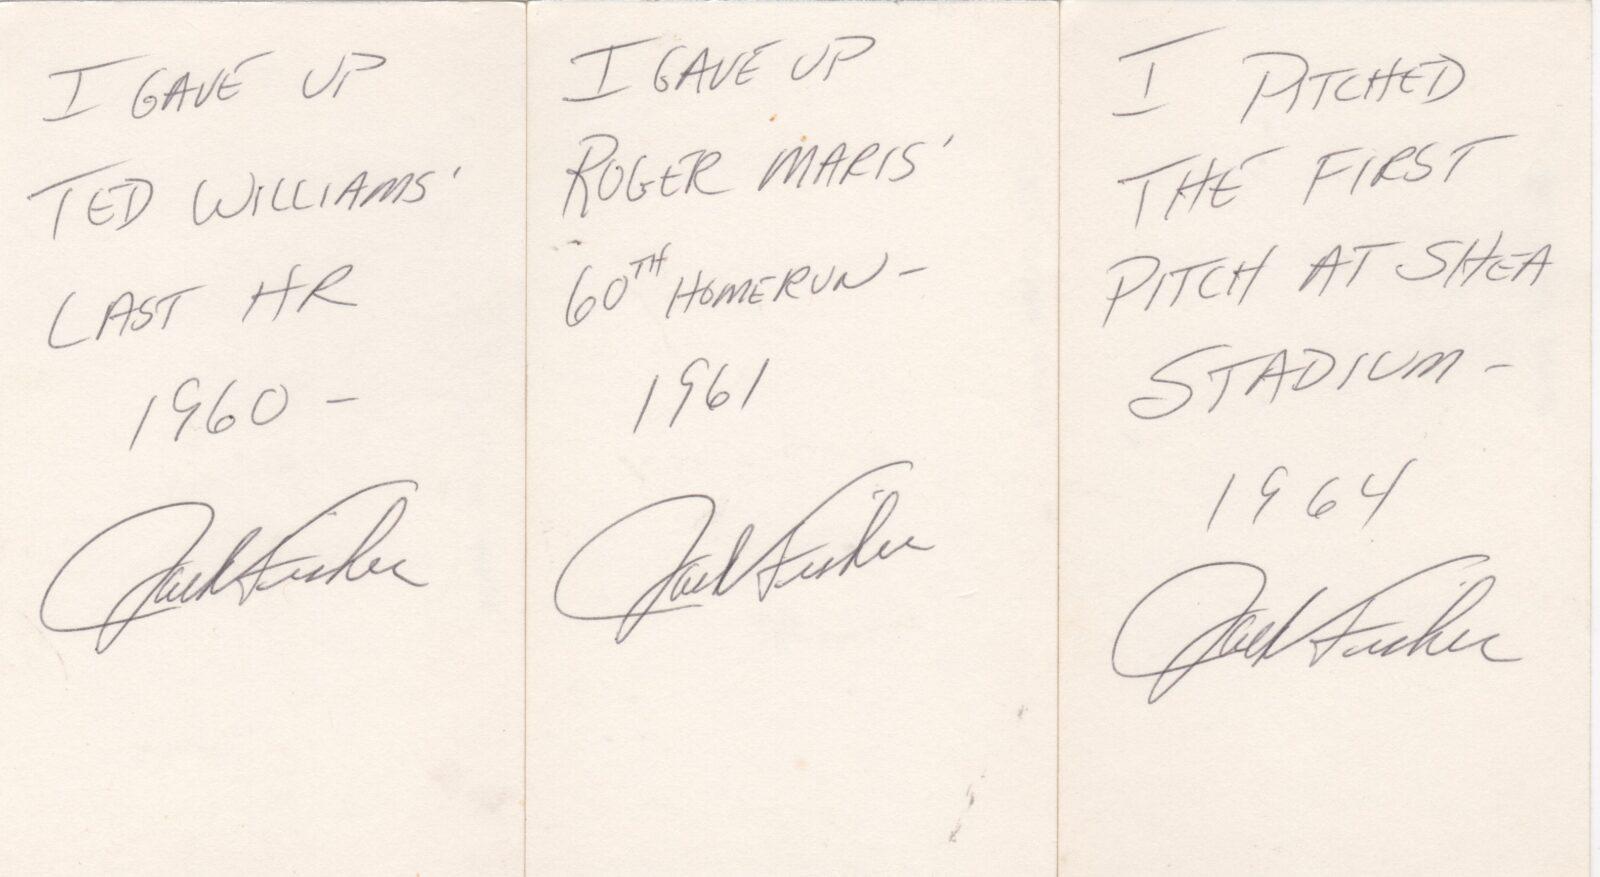 I GAVE UP
TED WILLIAMS'
LAST HR
1960 -
Jack Fisher
I GAVE UP
ROGER MARIS'
60TH HOMERUN -
1961
Jack Fisher
I PITCHED
THE FIRST
PITCH AT SHEA
STADIUM -
1964
Jack Fisher